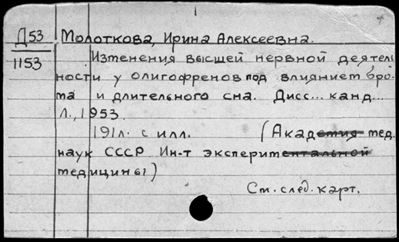 Д53 Молоткова, Ирина Алексеевна.
1153 Изменения высшей нервной деятель
ности у олигофренов под влиянием бро-
ма и длительного сна. Дисс... канд...
Л., 1953.
191л. с илл. (Академия мед.
наук СССР Ин-т экспериментальной
медицины)
См. след. карт.